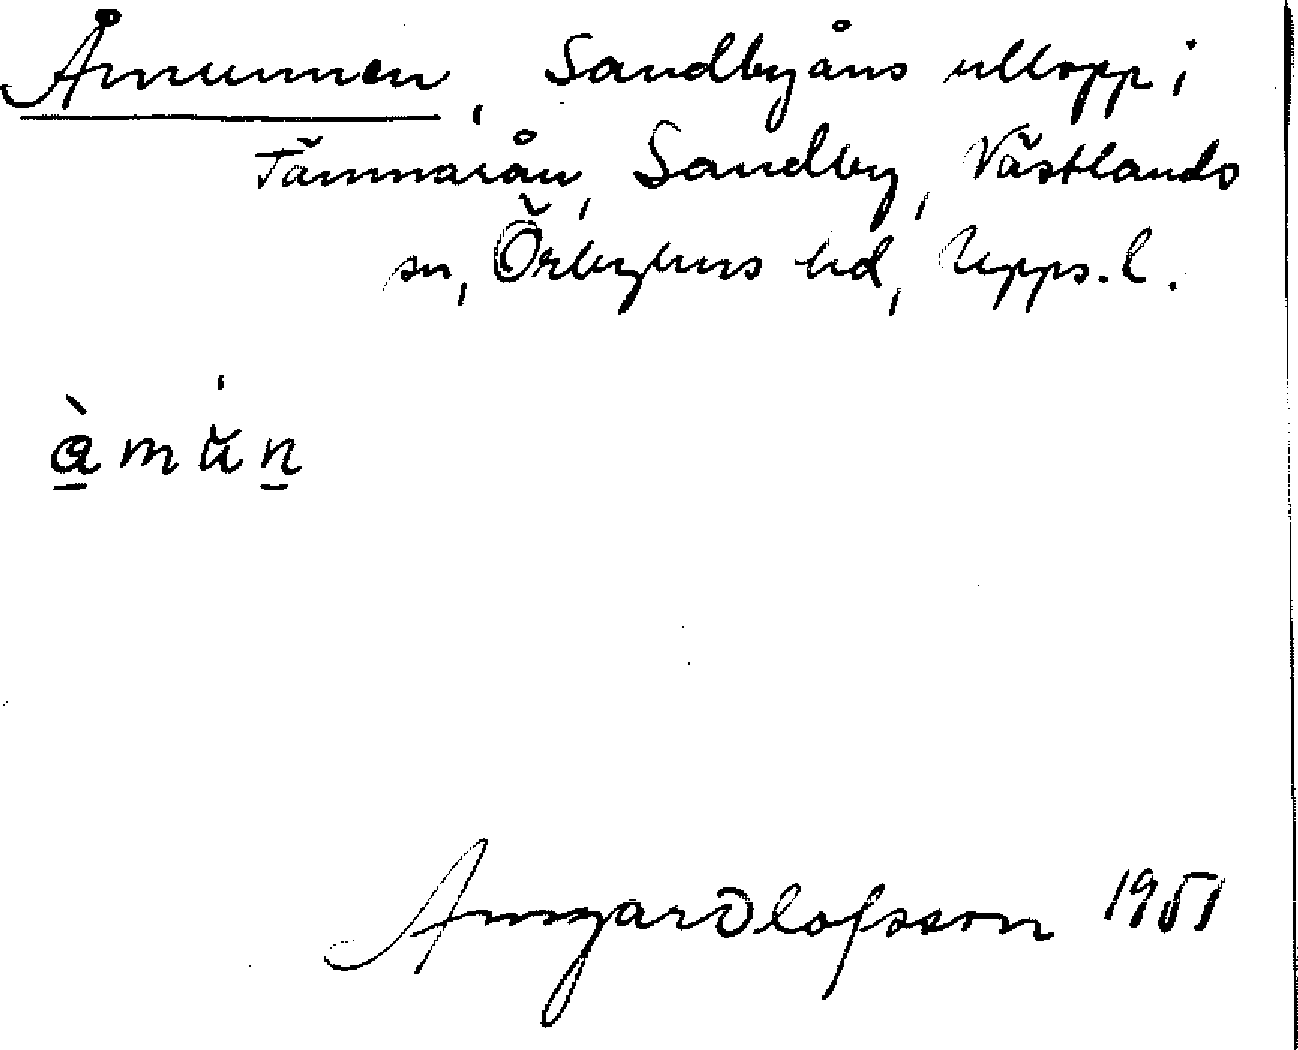 Åmunnen, Sandbyåns utlopp i
Tämnarån, Sandby, Västlands
sn, Örbyhus hd, Upps. l.
à̱ mŭ̍ṉ
Ansgar Olofsson 1951